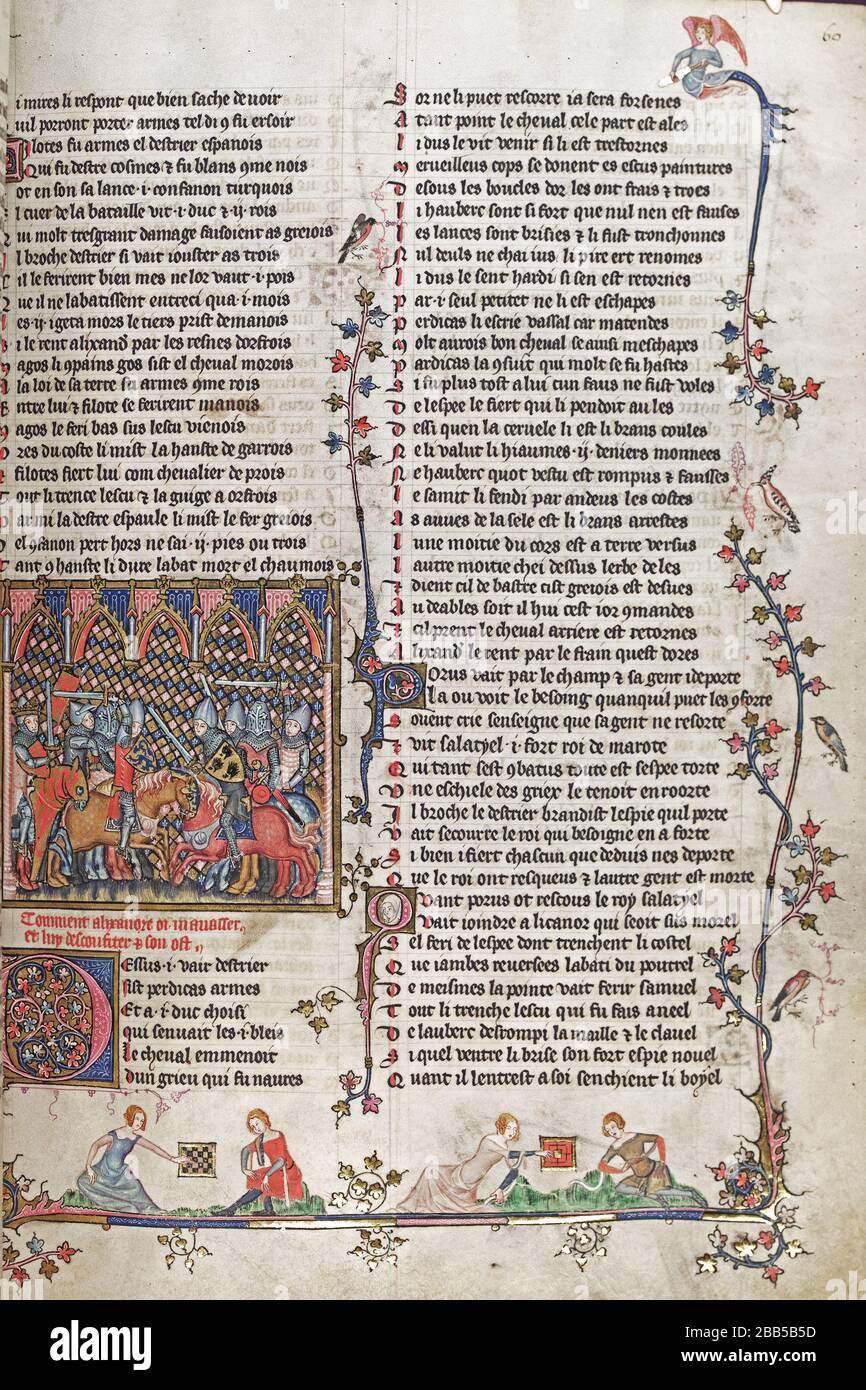 60
i mires li respont que bien sache de uoir
uil porront porter armes tel di 9 fu ersoir
ilotes fu armes el destrier espanois
Qui fu destre cosmes ⁊ fu blans 9me nois
ot en son sa lance · i · confanon turquois
l cuer de la bataille vit · i · duc ⁊ · ij · rois
ui molt tres grant damage faisoient as greiois
l broche destrier si vait iouster as trois
il le ferirent bien mes ne lor vaut · i · pois
ue il ne labatissent entreci qua · i · mois
es · ij · i geta mors le tiers prist demanois
i le rent alixand par les resnes dorfrois
agos li 9pains gos sist el cheual morois
la loi de sa terre fu armes 9me rois
ntre lui ⁊ filote se ferirent manois
agos le feri bas sus lescu vienois
res du coste li mist la hanste de garrois
filotes fiert lui com cheualier de prois
out li trence lescu ⁊ la guige a orfrois
armi la destre espaule li mist le fer greiois
el 9fanon pert hors ne sai · ij · pies ou trois
ant 9 hanste li dure labat mort el chaumois
Comment alixandre
et luy desconfiter ⁊ son ost
Dessus · i · vair destrier
sist perdicas armes
Et a · i · duc choisi
qui senuait les · i · bleis
Le cheual emmenoit
dun grieu qui fu naures
S or ne li puet rescorre ia sera forsenes
A tant point le cheual cele part est ales
L i dus le vit venir si li est trestornes
M erueilleus cops se donent es escus paintures
D esous les boucles dor les ont frais ⁊ troes
L i hauberc sont si fort que nul nen est fauses
L es lances sont brisies ⁊ li fust tronchonnes
N ul deuls ne chai ius li pire ert renomes
L i dus le sent hardi si sen est retornes
P ar · i · seul petitet ne li est eschapes
P erdicas li escrie vassal car matendes
M olt aurois bon cheual se ausi meschapes
P ardicas la 9suit qui molt se fu hastes
S i fu plus tost a lui cun faus ne fust voles
D e lespee le fiert qui li pendoit au les
D essi quen la ceruele li est li brans coules
N e li valut li hiaumes · ij · deniers monnees
N e hauberc quot vestu est rompus ⁊ fausses
L e samit li fendi par andeus les costes
A s auues de la sele est li brans arrestes
L une moitie du cors est a terre versus
L autre moitie chei dessus lerbe de les
⁊ dient cil de bastre cist greiois est desues
A u deables soit il hui cest ior 9mandes
⁊ cil prent le cheual arriere est retornes
A lixand le rent par le frain quest dores
Porus vait par le champ ⁊ sa gent i deporte
La ou voit le besoing quanquil puet les 9forte
S ouent crie senseigne que sa gent ne resorte
⁊ vit salatyel · i · fort roi de marote
Q ui tant sest 9batus toute est sespee torte
V ne eschiele des griex le tenoit en roorte
I l broche le destrier brandist lespie quil porte
V ait secourre le roi qui besoigne en a forte
S i bien i fiert chascun que deduis nes deporte
Q ue le roi ont resqueus ⁊ lautre gent est morte
Quant porus ot rescous le roy salatyel
Vait ioindre a licanor qui seoit sus morel
S el feri de lespee dont trenchent li costel
Q ue iambes reuersees labati du poutrel
D e meismes la pointe vait ferir samuel
T out li trenche lescu qui fu fais a neel
D e lauberc desrompi la maille ⁊ le clauel
S i quel ventre li brise son fort espie nouel
Q uant il lentrest a soi senchient li boyel
alamy
Image ID: 2BB5B5D
www.alamy.com